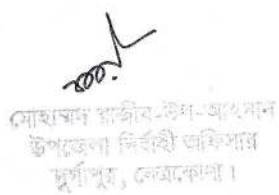 মোহাম্মদ রাজীব-উল-আহসান
উপজেলা নির্বাহী অফিসার
দুর্গাপুর, নেত্রকোনা।